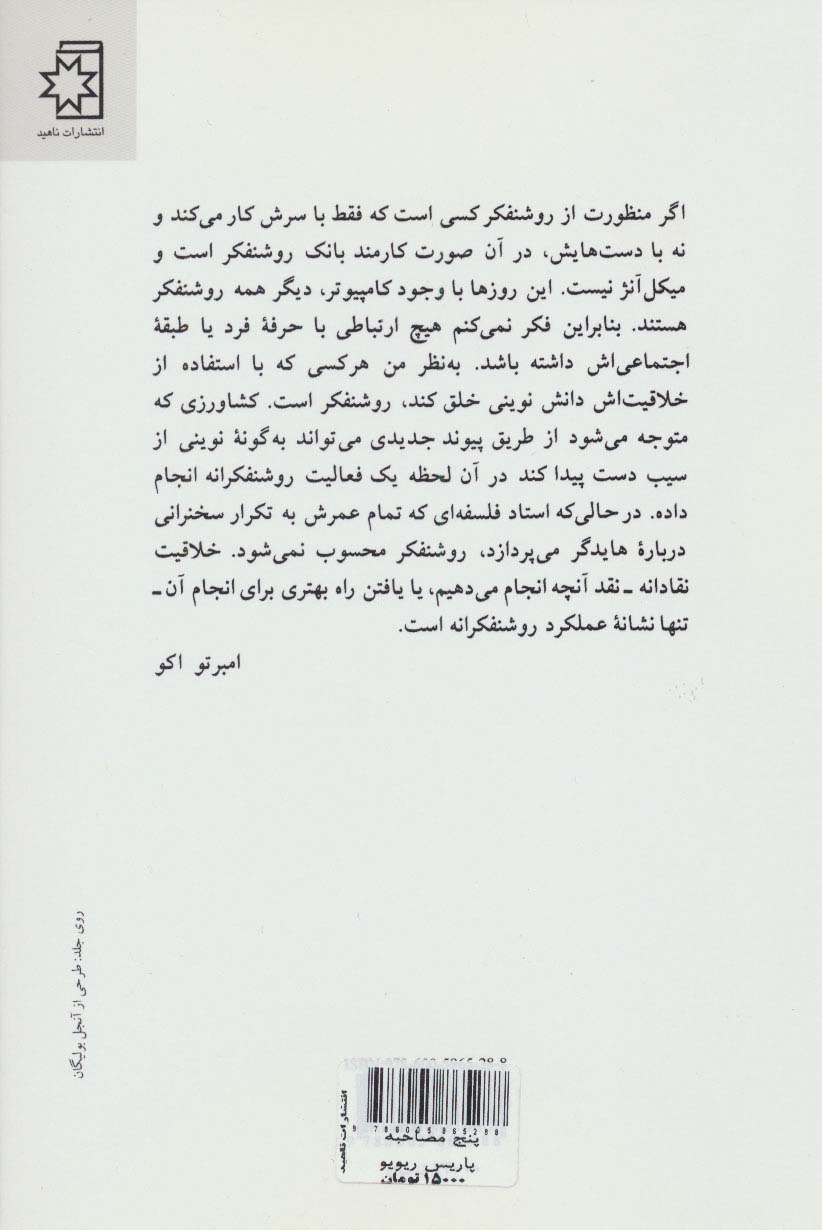 انتشارات ناهید
اگر منظورت از روشنفکر کسی است که فقط با سرش کار می‌کند و
نه با دست‌هایش، در آن صورت کارمند بانک روشنفکر است و
میکل‌آنژ نیست. این روزها با وجود کامپیوتر، دیگر همه روشنفکر
هستند. بنابراین فکر نمی‌کنم هیچ ارتباطی با حرفهٔ فرد یا طبقهٔ
اجتماعی‌اش داشته باشد. به‌نظر من هرکسی که با استفاده از
خلاقیت‌اش دانش نوینی خلق کند، روشنفکر است. کشاورزی که
متوجه می‌شود از طریق پیوند جدیدی می‌تواند به‌گونهٔ نوینی از
سیب دست پیدا کند در آن لحظه یک فعالیت روشنفکرانه انجام
داده. در حالی‌که استاد فلسفه‌ای که تمام عمرش به تکرار سخنرانی
دربارهٔ هایدگر می‌پردازد، روشنفکر محسوب نمی‌شود. خلاقیت
نقادانه ـ نقد آنچه انجام می‌دهیم، یا یافتن راه بهتری برای انجام آن ـ
تنها نشانهٔ عملکرد روشنفکرانه است.
امبرتو اکو
روی جلد: طرحی از آنجل بولیگان
انتشارات ناهید
9 786005 865288
پنج مصاحبه
پاریس ریویو
۱۵۰۰۰ تومان